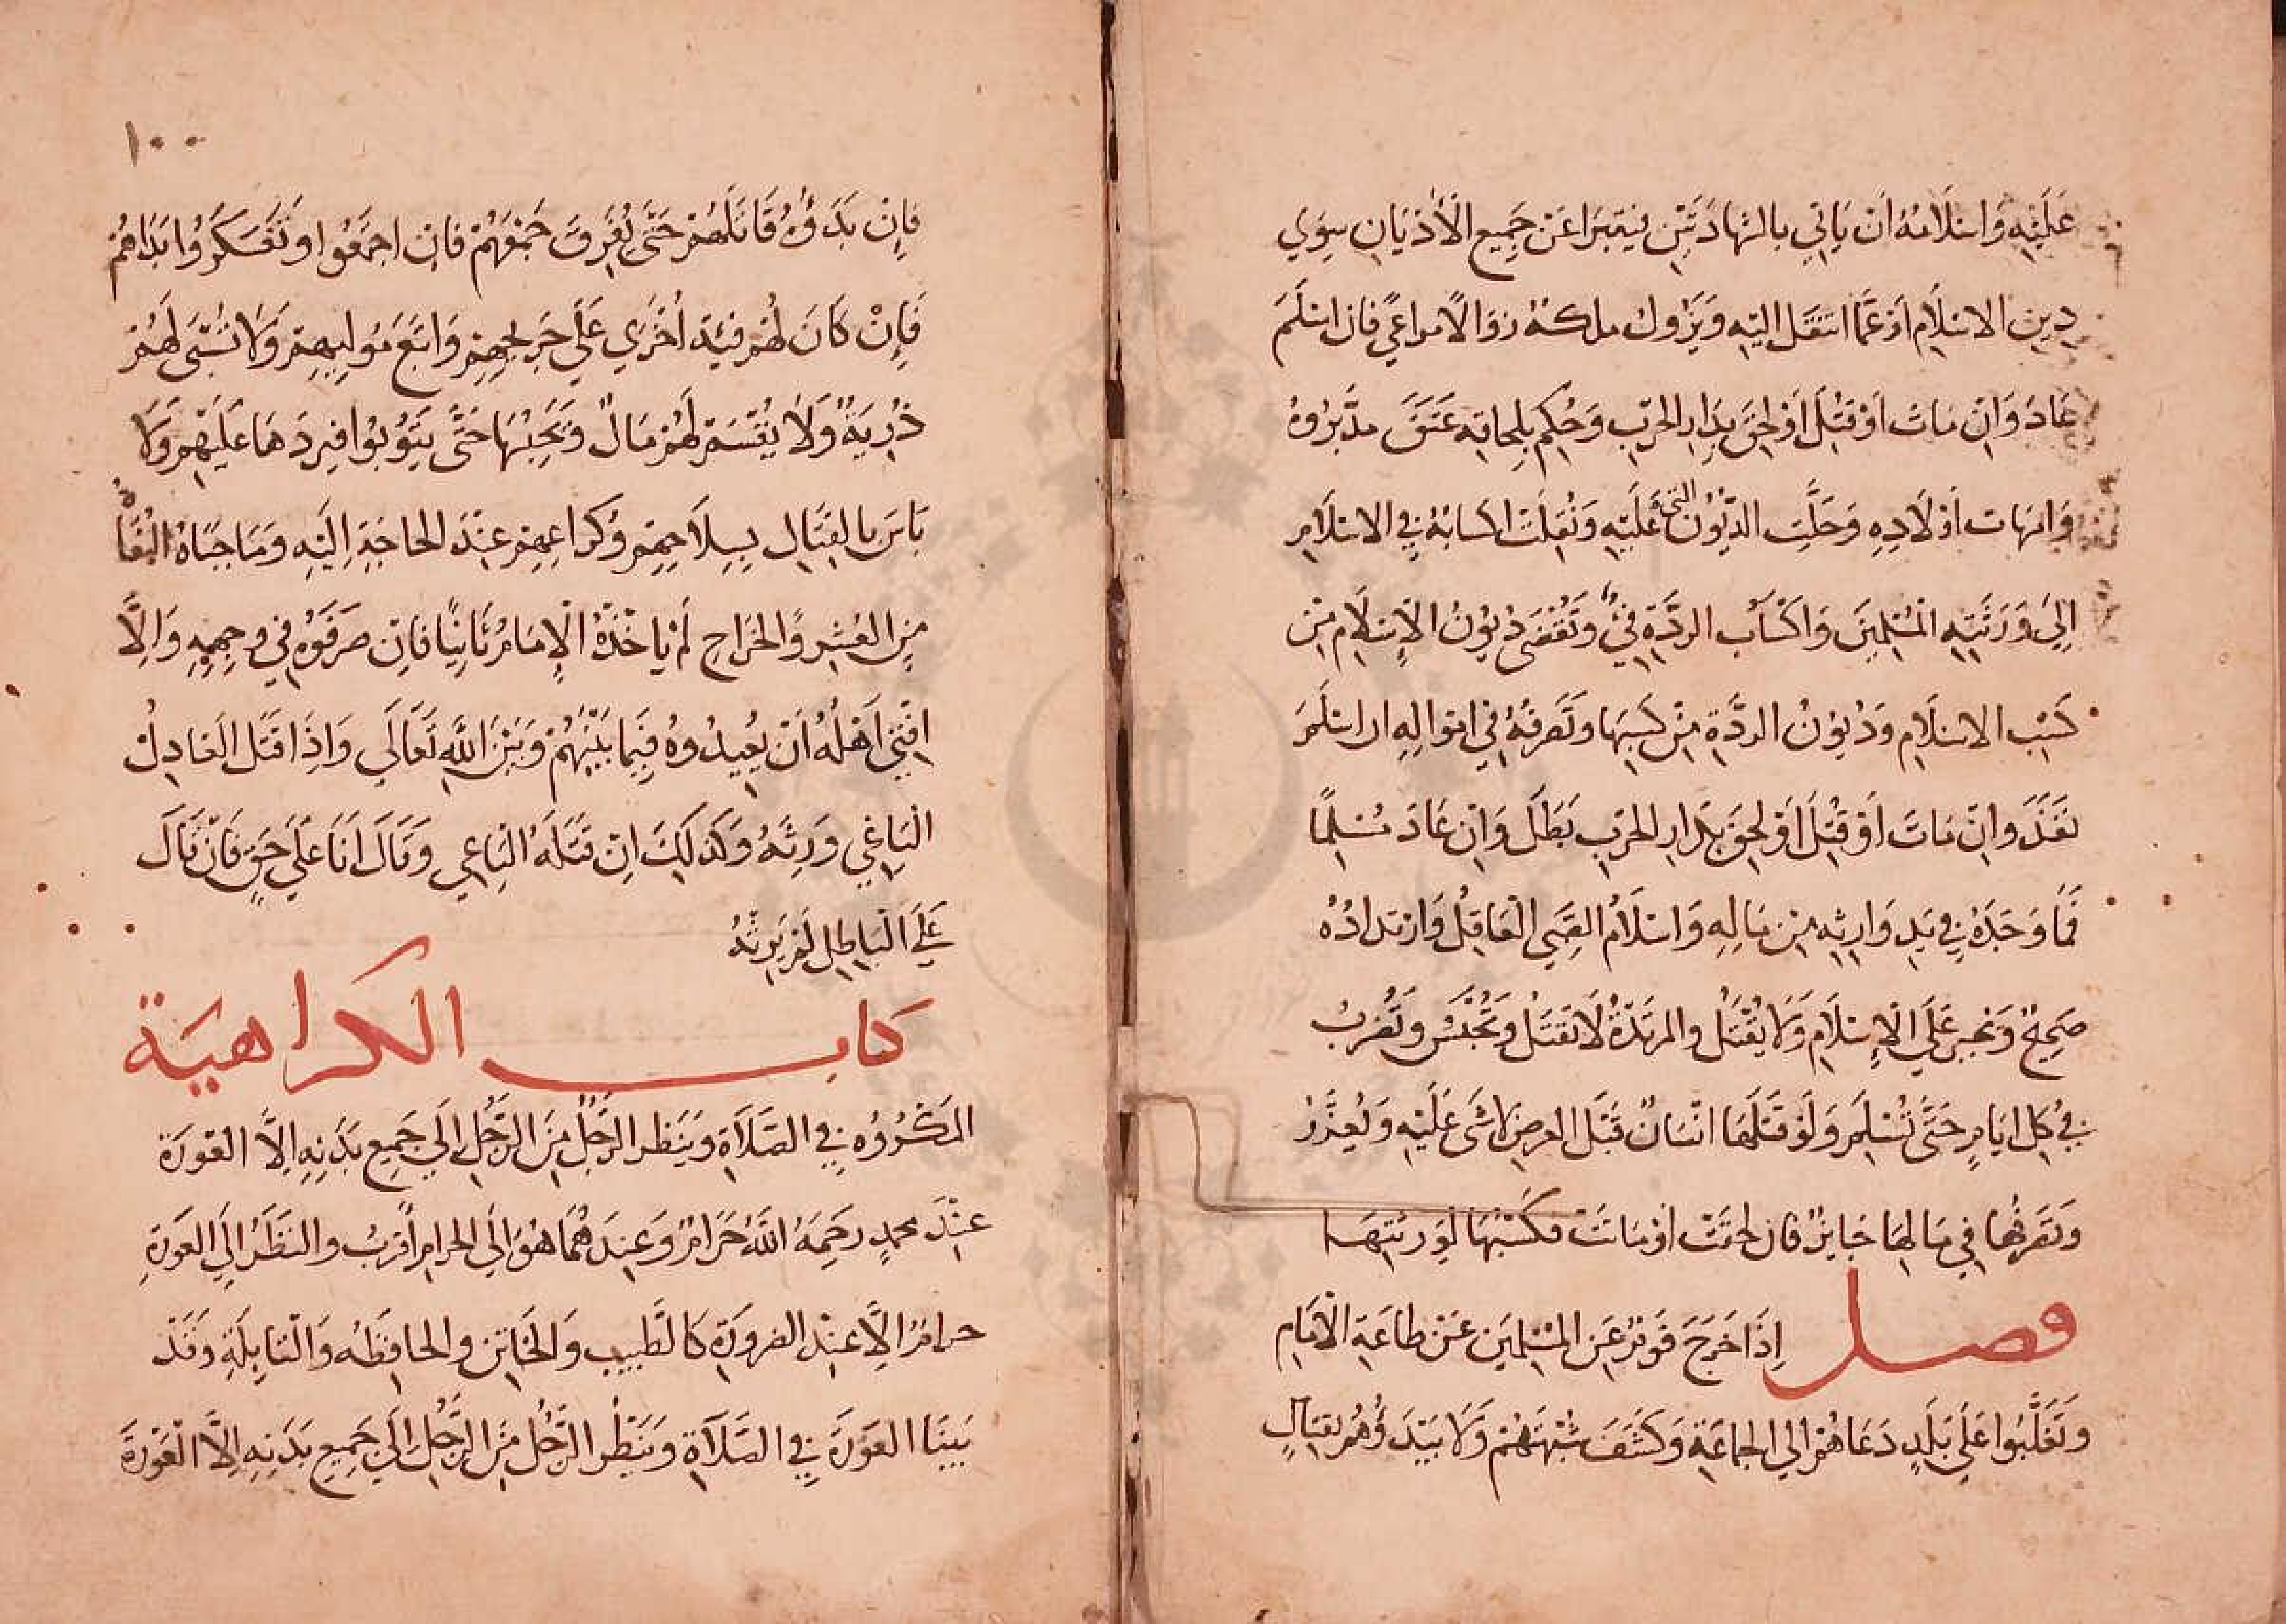 عَلَيْهِ وَاسْلَامُهُ اَنْ يَاتِي بالشَّهادَتَيْنِ فيَتبَرا عَنْ جَمِيع الْأَدْيَانِ سِوَي
دِينِ الاسْلَامِ اَوْ عَمَّا انتقَلَ اِليْهِ وَيَزُول ملكُهُ زوَالاً مراعيً فان اسْلَمَ
عَادَ وَاِنْ مَاتَ اَوْ قُتِلَ اَوْ لحِقَ بدَارِ الحَرْبِ وَحُكِمَ بِلحَاقِهِ عَتَقَ مدَّبرُوهُ
وَامهَات اَوْلَادِهِ وَحَلَّتِ الدّيُون التي عَلَيْهِ وَنُقِلَتْ اكسَابُهُ فِي الاسْلَامِ
اِلَى وَرَثَتِهِ الْمُسْلِمِينَ وَاكْسَابُ الردَّةِ فيْءٌ وَتُقْضَى دُيُونُ الْاِسْلَامِ مِنْ
كَسْبِ الاسْلَامِ وَدُيُونُ الردَّةِ مِنْ كَسْبِهَا وتَصَرفُهُ فِي امْوَالِهِ ان اسْلَمَ
نفَذَ وانْ مَاتَ اَوْ قُتِلَ اَوْ لحِقَ بدَارِ الحَرْبِ بَطَلَ وَاِنْ عَادَ مُسْلِمًا
فَمَا وَجَدَهُ فِي يَدِ وَارِثِهِ مِنْ مَالِهِ وَاسْلَامُ الصَّبي الْعَاقِل وَارْتدادُهُ
صَحِيحٌ وَيجبر عَلَي الْاِسْلَامِ وَلَا يُقْتَل والمرتَدَّةُ لَا تُقتَل وَتُحْبَسُ وتُضْربُ
فِي كل ايَامٍ حَتَّى تُسْلِمَ وَلَوْ قَتَلَهَا انْسَانٌ قبَل العرضِ لا شَي عَلَيْهِ وَيُعَزَّرُ
وَتصَرفُها فِي مَالِهَا جَايزٌ فان لحقَتْ اَوْ مَاتَتْ فكَسْبُهَا لوَرثتِهَا
فصل اِذَا خَرَجَ قَوْمٌ مِنَ الْمُسْلِمِينَ عَنْ طاعَةِ الْاِمَامِ
وَتَغَلَّبُوا عَلَي بَلَدٍ دَعَاهُمْ الي الجماعَةِ وَكَشَفَ شُبْهَتَهُمْ وَلَا يَبْدَؤُهُمْ بقتَالٍ
١٠٠
فاِنْ بَدَؤُهُ قَاتَلَهُمْ حَتَّى يُفَرِقَ جَمْعَهُمْ فان اجتمَعُوا وتَعَسْكَرُوا بَدَاهُمْ
فَاِنْ كَانَ لَهُمْ فئِةٌ اُخْرَي اجهز عَلَي جَرِيحِهِمْ وَاتبَعَ مُوَلِيهِمْ وَلَا تُسْبَى لَهُمْ
ذُرِيَةٌ وَلَا يُقْسَمُ لَهُمْ مَالٌ وَيَحْبِسُهَا حَتَّى يَتُوبُوا فيردَهَا عَلَيْهِم وَلَا
بَاسَ بالقِتَالِ بِسِلَاحِهِم وَكرَاعِهِم عِنْدَ الحاجَةِ اِلَيْهِ وَمَا جبَاهُ الْبُغَاةُ
مِن العُشِرِ وَالخَرَاجِ لَمْ يَاخُذْهُ الْاِمَامُ ثَانِيًا فاِنْ صرَفوُهُ فِي وجهِهِ وَاِلَّا
افْتِيَ اَهْلُهُ اَنْ يعُيِدُوهُ فِيمَا بَيْنَهُمْ وَبَيْنَ اللهِ تَعَالَي وَاِذَا قَتَل الْعَادِلُ
الْبَاغِي وَرِثَهُ وَكَذلِكَ اِنْ قَتَلَهُ الْبَاغِي وَقَالَ اَنَا عَلَي حَقٍ فَاِنْ قَالَ
عَلَي الْبَاطِل لَمْ يَرِثْهُ
كتاب الكراهيَة
المَكْرُوُه فِي الصَّلَاةِ وَيَنظر الرجُل مِنَ الرَّجُلِ اِلَي جَمِيعِ بَدَنِهِ اِلَّا العَوْرَة
عِنْدَ محمدٍ رحَمَهُ اللهُ حَرَامٌ وَعِندَهُمَا هُوَ اِلَى الحرامِ اَقرَبُ والنظَرُ اِلَي العَورَةِ
حرامٌ الَّا عِنْد الضرورَةِ كالطَبيبِ وَالخَاتِنِ والحافِظَه وَالْقابِلَةِ وَقَدْ
بَيَنَّا العَوْرَةَ فِي الصَّلَاةِ وَيَنظُر الرَّجُل مِنَ الرَّجُلِ اِلَي جَمِيعِ بَدَنِهِ اِلَّا الْعَوْرَةَ